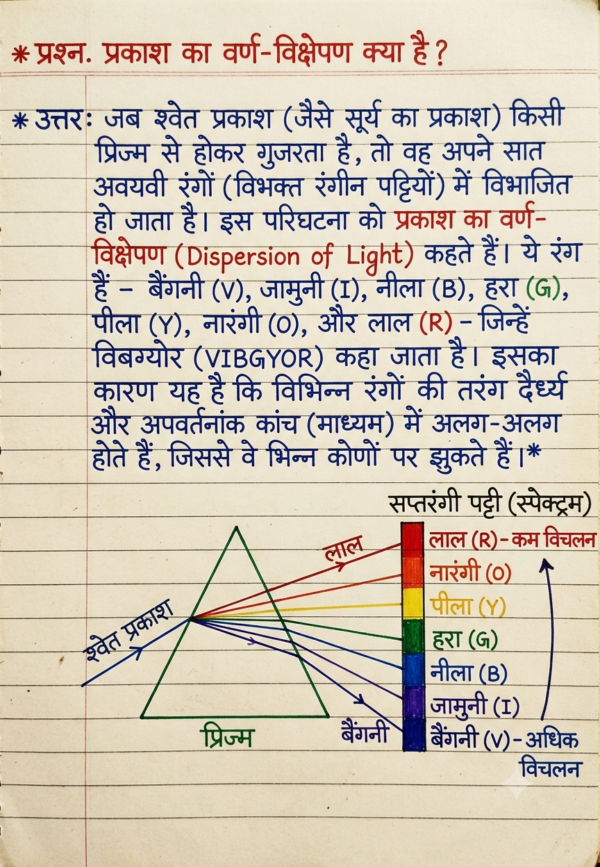 * प्रश्न. प्रकाश का वर्ण-विक्षेपण क्या है?
* उत्तर: जब श्वेत प्रकाश (जैसे सूर्य का प्रकाश) किसी
प्रिज्म से होकर गुजरता है, तो वह अपने सात
अवयवी रंगों (विभक्त रंगीन पट्टियों) में विभाजित
हो जाता है। इस परिघटना को प्रकाश का वर्ण-
विक्षेपण (Dispersion of Light) कहते हैं। ये रंग
हैं - बैंगनी (V), जामुनी (I), नीला (B), हरा (G),
पीला (Y), नारंगी (O), और लाल (R) - जिन्हें
विबग्योर (VIBGYOR) कहा जाता है। इसका
कारण यह है कि विभिन्न रंगों की तरंग दैर्ध्य
और अपवर्तनांक कांच (माध्यम) में अलग-अलग
होते हैं, जिससे वे भिन्न कोणों पर झुकते हैं।*
सप्तरंगी पट्टी (स्पेक्ट्रम)
लाल
लाल (R) - कम विचलन
नारंगी (O)
पीला (Y)
श्वेत प्रकाश
हरा (G)
नीला (B)
जामुनी (I)
प्रिज्म
बैंगनी
बैंगनी (V) - अधिक
विचलन